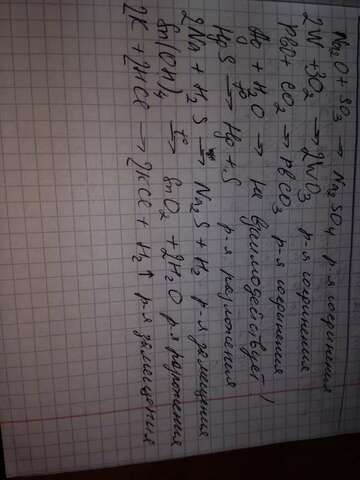 Na₂O + SO₃ → Na₂SO₄ р-я соединения
2W + 3O₂ → 2WO₃ р-я соединения
PbO + CO₂ → PbCO₃ р-я соединения
+ H₂O → не взаимодействует!
HgS →t° Hg + S р-я разложения
2Na + H₂S → Na₂S + H₂ р-я замещения
Sn(OH)₄ →t° SnO₂ + 2H₂O р-я разложения
2K + 2HCl → 2KCl + H₂↑ р-я замещения